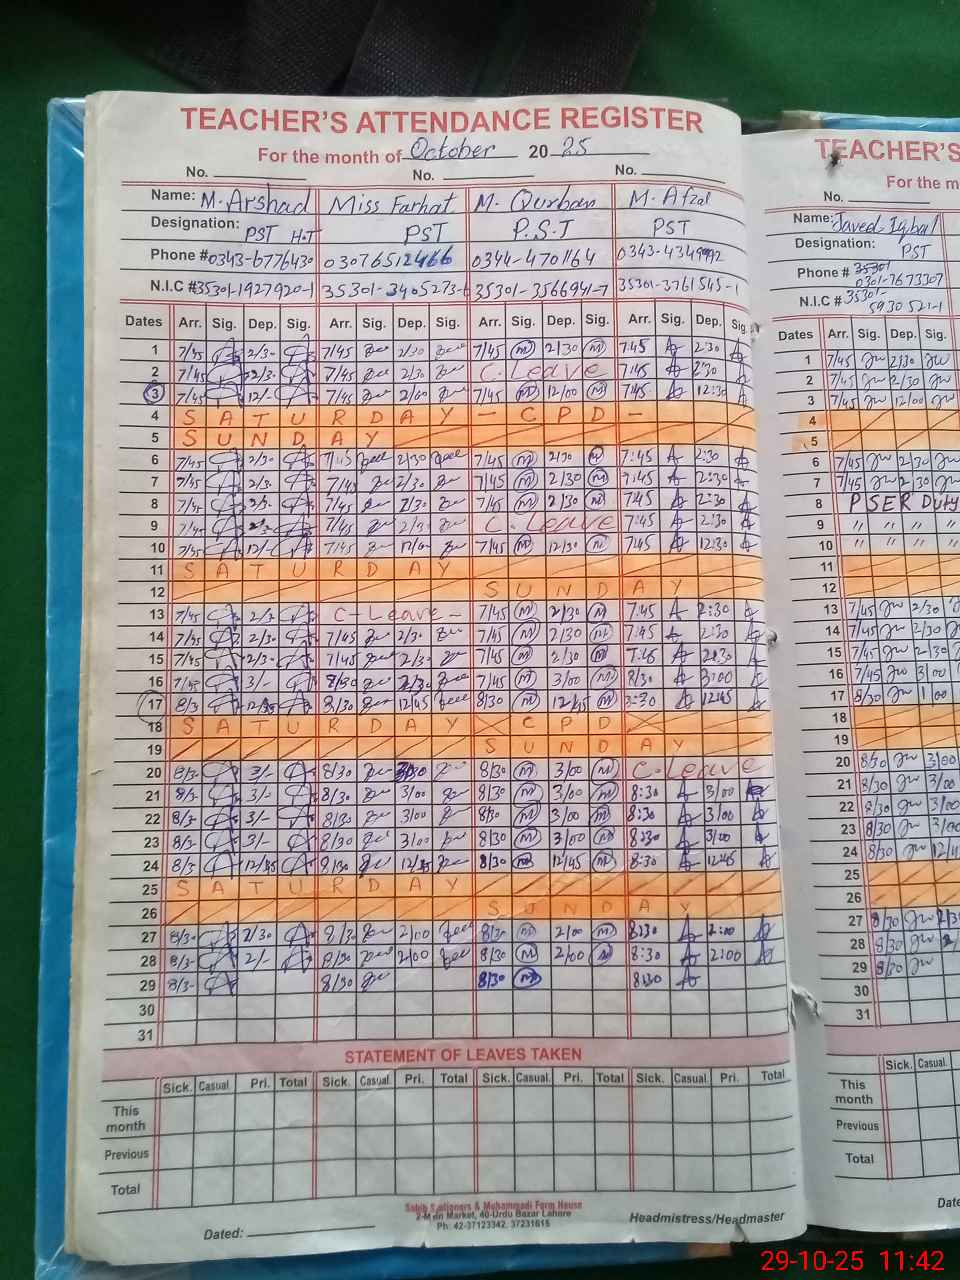 TEACHER'S ATTENDANCE REGISTER
For the month of October 20 25
No. No. No.
Name: M. Arshad Miss Farhat M. Qurban M. Afzal
Designation: PST H.T PST P.S.T PST
Phone #0343-6776430 03076512466 0344-4701164
N.I.C #35301-1927920-1 35301-3566941-7 35301-3761545-1
Dates Arr. Sig. Dep. Sig. Arr. Sig. Dep. Sig. Arr. Sig. Dep. Sig. Arr. Sig. Dep. Sig.
1 7/45 2/30 7/45 2/30 7/45 M 2/30 M 7:45 2:30
2 7/45 2/30 7/45 2/30 C. Leave 7:45 2:30
3 7/45 12/- 7/45 7/45 M 12/00 M 7:45 12:30
4 SATURDAY - CPD -
5 SUNDAY
6 7/45 2/30 7/45 2/30 7/45 M 2/30 M 7:45 2:30
7 7/45 2/30 7/45 2/30 7/45 M 2/30 M 7:45 2:30
8 7/45 2/30 7/45 2/30 7/45 M 2/30 M 7:45 2:30
9 7/45 2/30 7/45 2/30 C. Leave 7:45 2:30
10 7/45 12/- 7/45 7/45 M 12/30 M 7:45 12:30
11 SATURDAY
12 SUNDAY
13 7/45 2/30 C-Leave- 7/45 M 2/30 M 7:45 2:30
14 7/45 2/30 7/45 2/30 7/45 M 2/30 M 7:45 2:30
15 7/45 2/30 7/45 2/30 7/45 M 2/30 M 7:45 2:30
16 7/45 3/- 8/30 7/45 M 3/00 M 8/30 3:00
17 8/3 8/30 12/45 8/30 M 12/45 M 12:45
18 SATURDAY CPD
19 SUNDAY
20 8/3- 3/- 8/30 8/30 M 3/00 M C. Leave
21 8/3- 3/- 8/30 3/00 8/30 M 3/00 M 8:30 3/00
22 8/3- 3/- 8/30 3/00 8/30 M 3/00 M 8:30 3/00
23 8/3- 3/- 8/30 3/00 8/30 M 3/00 M 8:30 3/00
24 8/3 8/30 8/30 M 12/45 M 8:30 12:45
25 SATURDAY
26 SUNDAY
27 8/3- 2/30 8/30 2/00 8/30 M 2/00 M 8:30 2:00
28 8/3- 2/- 8/30 2/00 8/30 M 2/00 M 8:30 2:00
29 8/3- 8/30 8/30 M 8:30
30
31
STATEMENT OF LEAVES TAKEN
Sick. Casual. Pri. Total Sick. Casual. Pri. Total Sick. Casual. Pri. Total Sick. Casual. Pri. Total
This month
Previous
Total
Sabib Stationers & Muhammadi Form House
2-Main Market, 40-Urdu Bazar Lahore
Ph: 42-37123342, 37231615
Dated: Headmistress/Headmaster
TEACHER'S
For the m
No.
Name: Javed Iqbal
Designation: PST
Phone # 35301 0301-7673307
N.I.C # 35301-5930521-1
Dates Arr. Sig. Dep. Sig.
1 7/45 2/30
2 7/45 2/30
3 7/45 12/00
4
5
6 7/45 2/30
7 7/45 2/30
8 PSER Duty
9 " " " "
10 " " " "
11
12
13 7/45 2/30
14 7/45 2/30
15 7/45 2/30
16 7/45 3/00
17 8/30 1/00
18
19
20 8/30 3/00
21 8/30 3/00
22 8/30 3/00
23 8/30 3/00
24 8/30
25
26
27 8/30
28 8/30
29 8/30
30
31
Sick. Casual.
This month
Previous
Total
Date
29-10-25 11:42